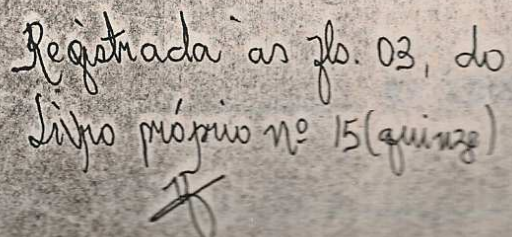 Registrada às fls. 03, do
Livro próprio nº 15 (quinze)